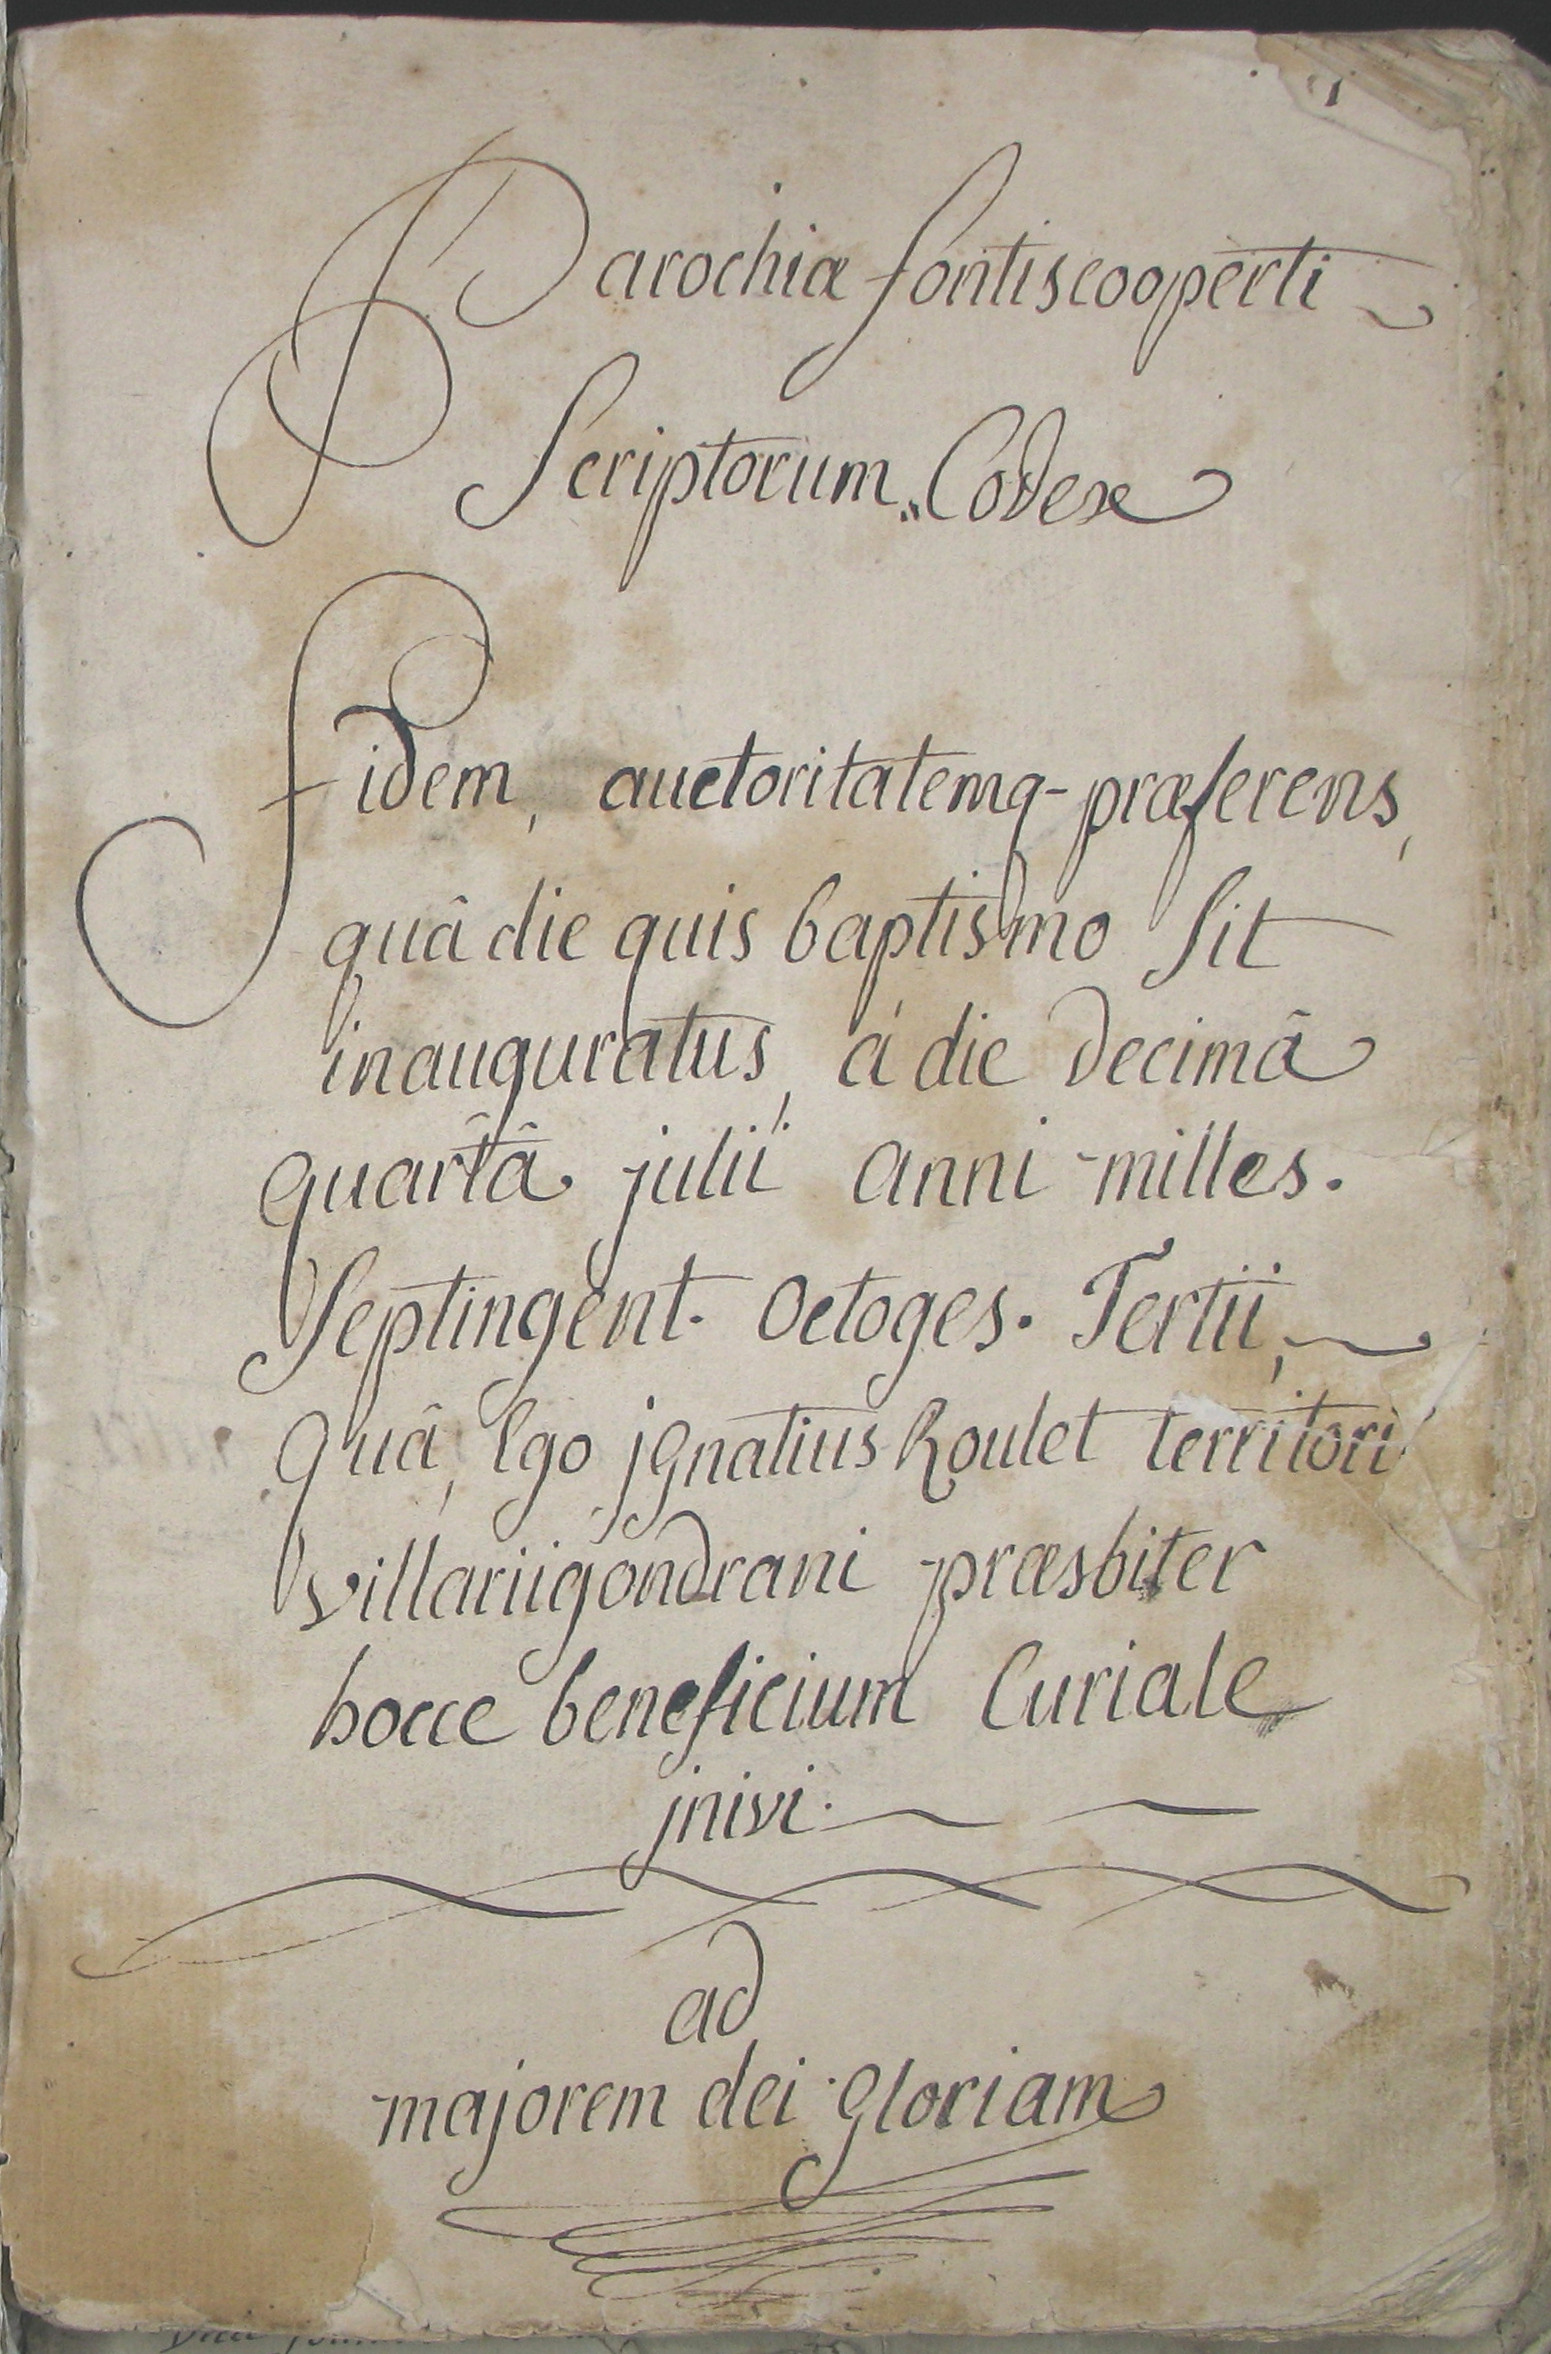 1
Parochiæ fontiscooperti
Scriptorum Codex
Fidem, auctoritatemq- præferens,
quâ die quis baptismo sit
inauguratus, á die decimâ
quartâ julii anni milles.
septingent. octoges. Tertii,
quâ, Ego jgnatius Roulet territori
villariigondrani præsbiter
hocce beneficium Curiale
jnivi.
ad
majorem dei gloriam